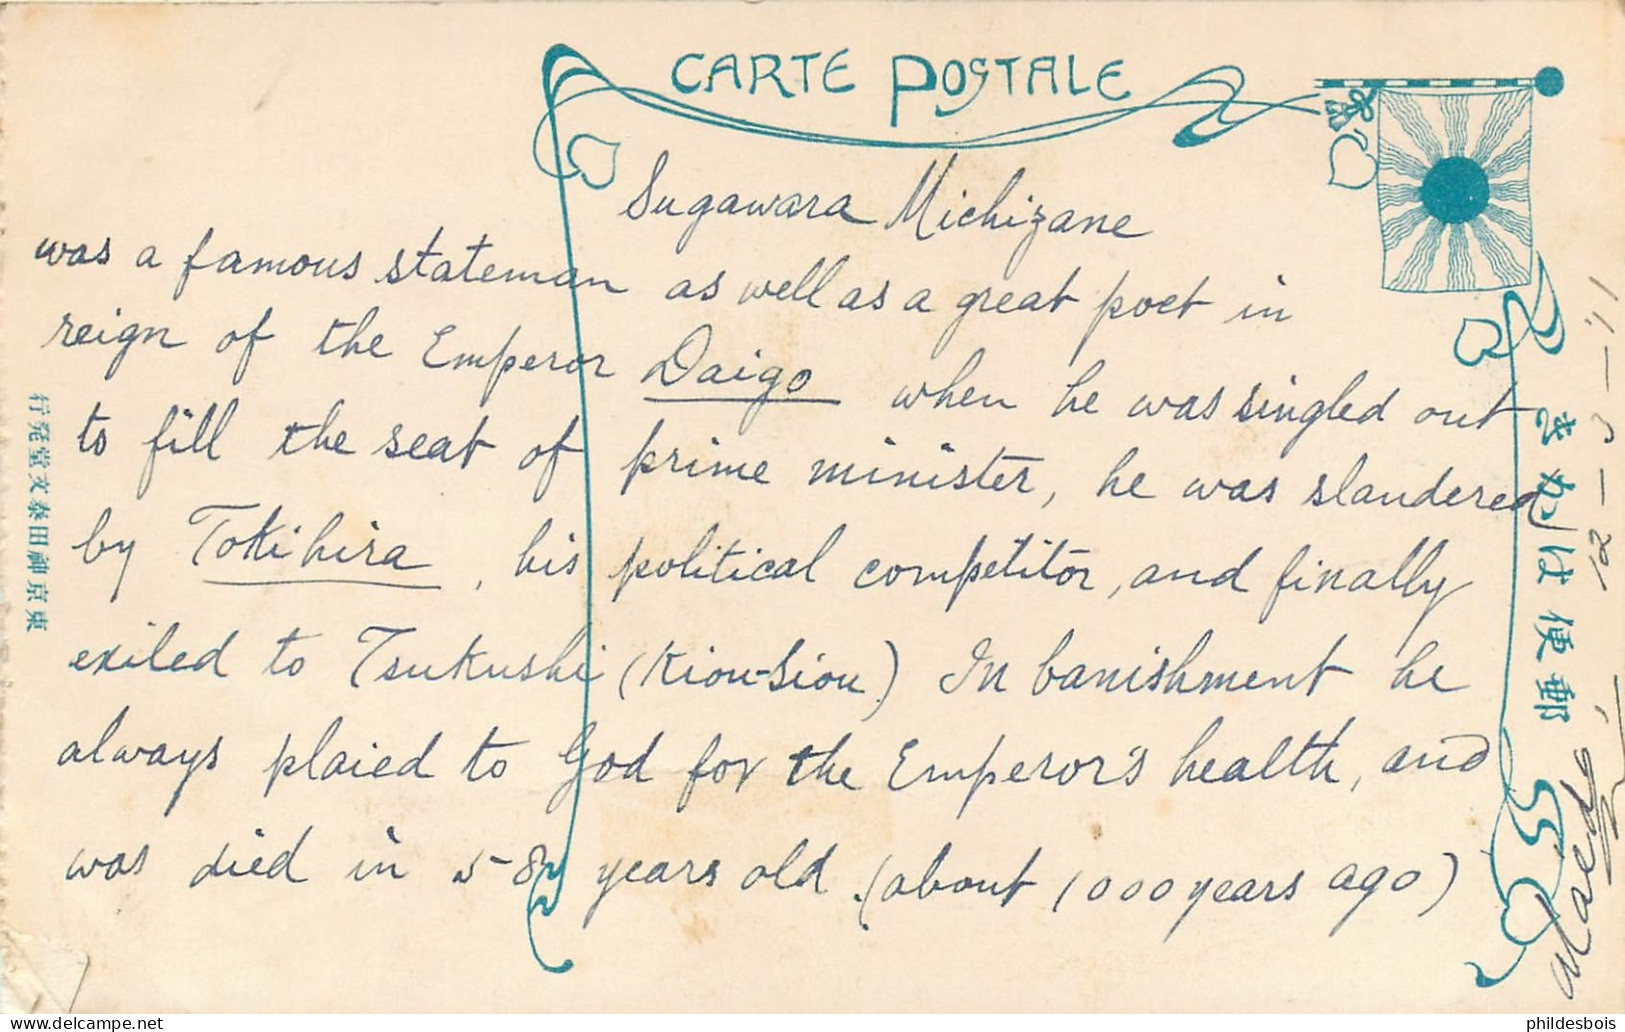 CARTE POSTALE
Sugawara Michizane
was a famous stateman as well as a great poet in
reign of the Emperor Daigo when he was singled out
to fill the seat of prime minister, he was slandered
by Tokihira, his political competitor, and finally
exiled to Tsukushi (Kiou-Siou) In banishment he
always plaied to God for the Emperor's health, and
was died in 58 years old. (about 1000 years ago)
きかは便郵
行発堂文泰田神京東
12-3-'11
Maeda
phildesbois